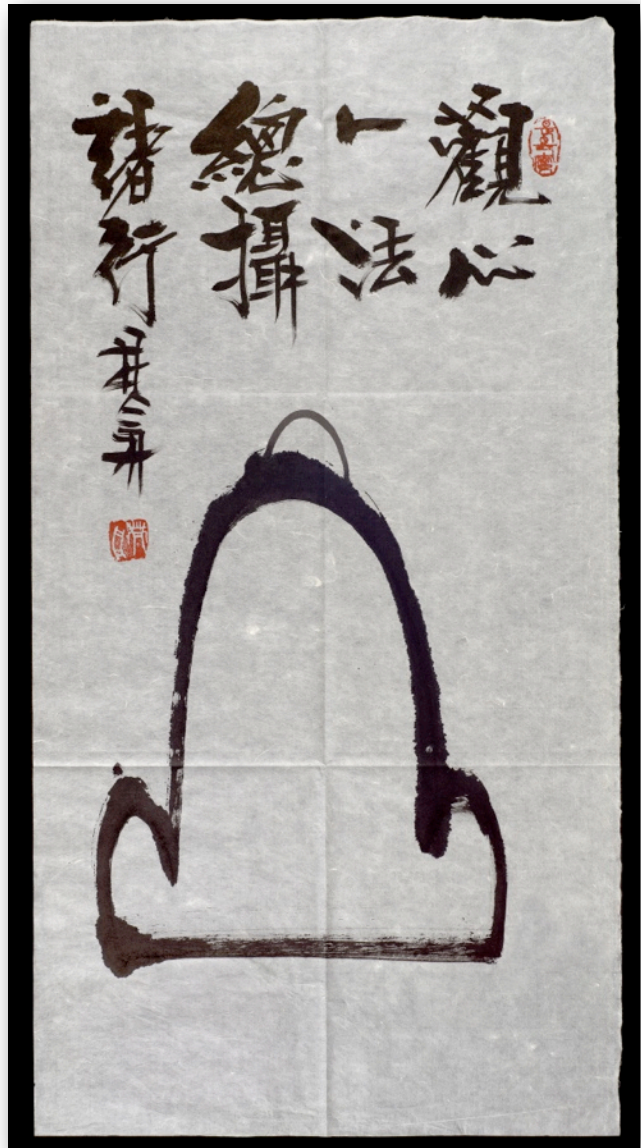 觀心
一法
總攝
諸行